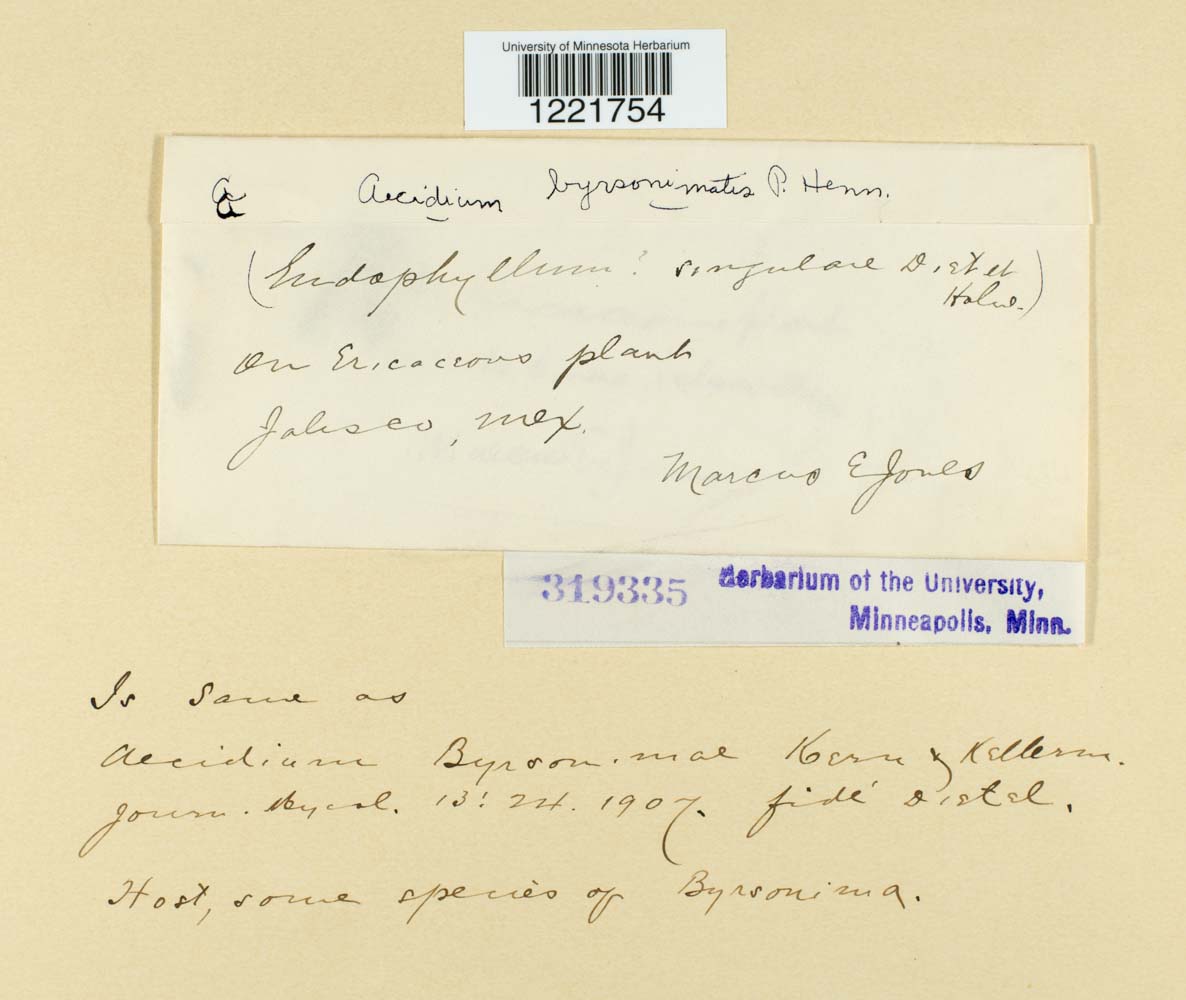 University of Minnesota Herbarium
1221754
a
Aecidium byrsonimatis P. Henn.
(Endophyllum? singulare Diet et Holw.)
On Ericaceous plant
Jalisco, Mex.
Marcus E Jones
319335
Herbarium of the University,
Minneapolis, Minn.
Is same as
Aecidium Byrsonimae Kern & Kellerm.
Journ. Mycol. 13: 24. 1907. fidé Dietel.
Host, some species of Byrsonima.